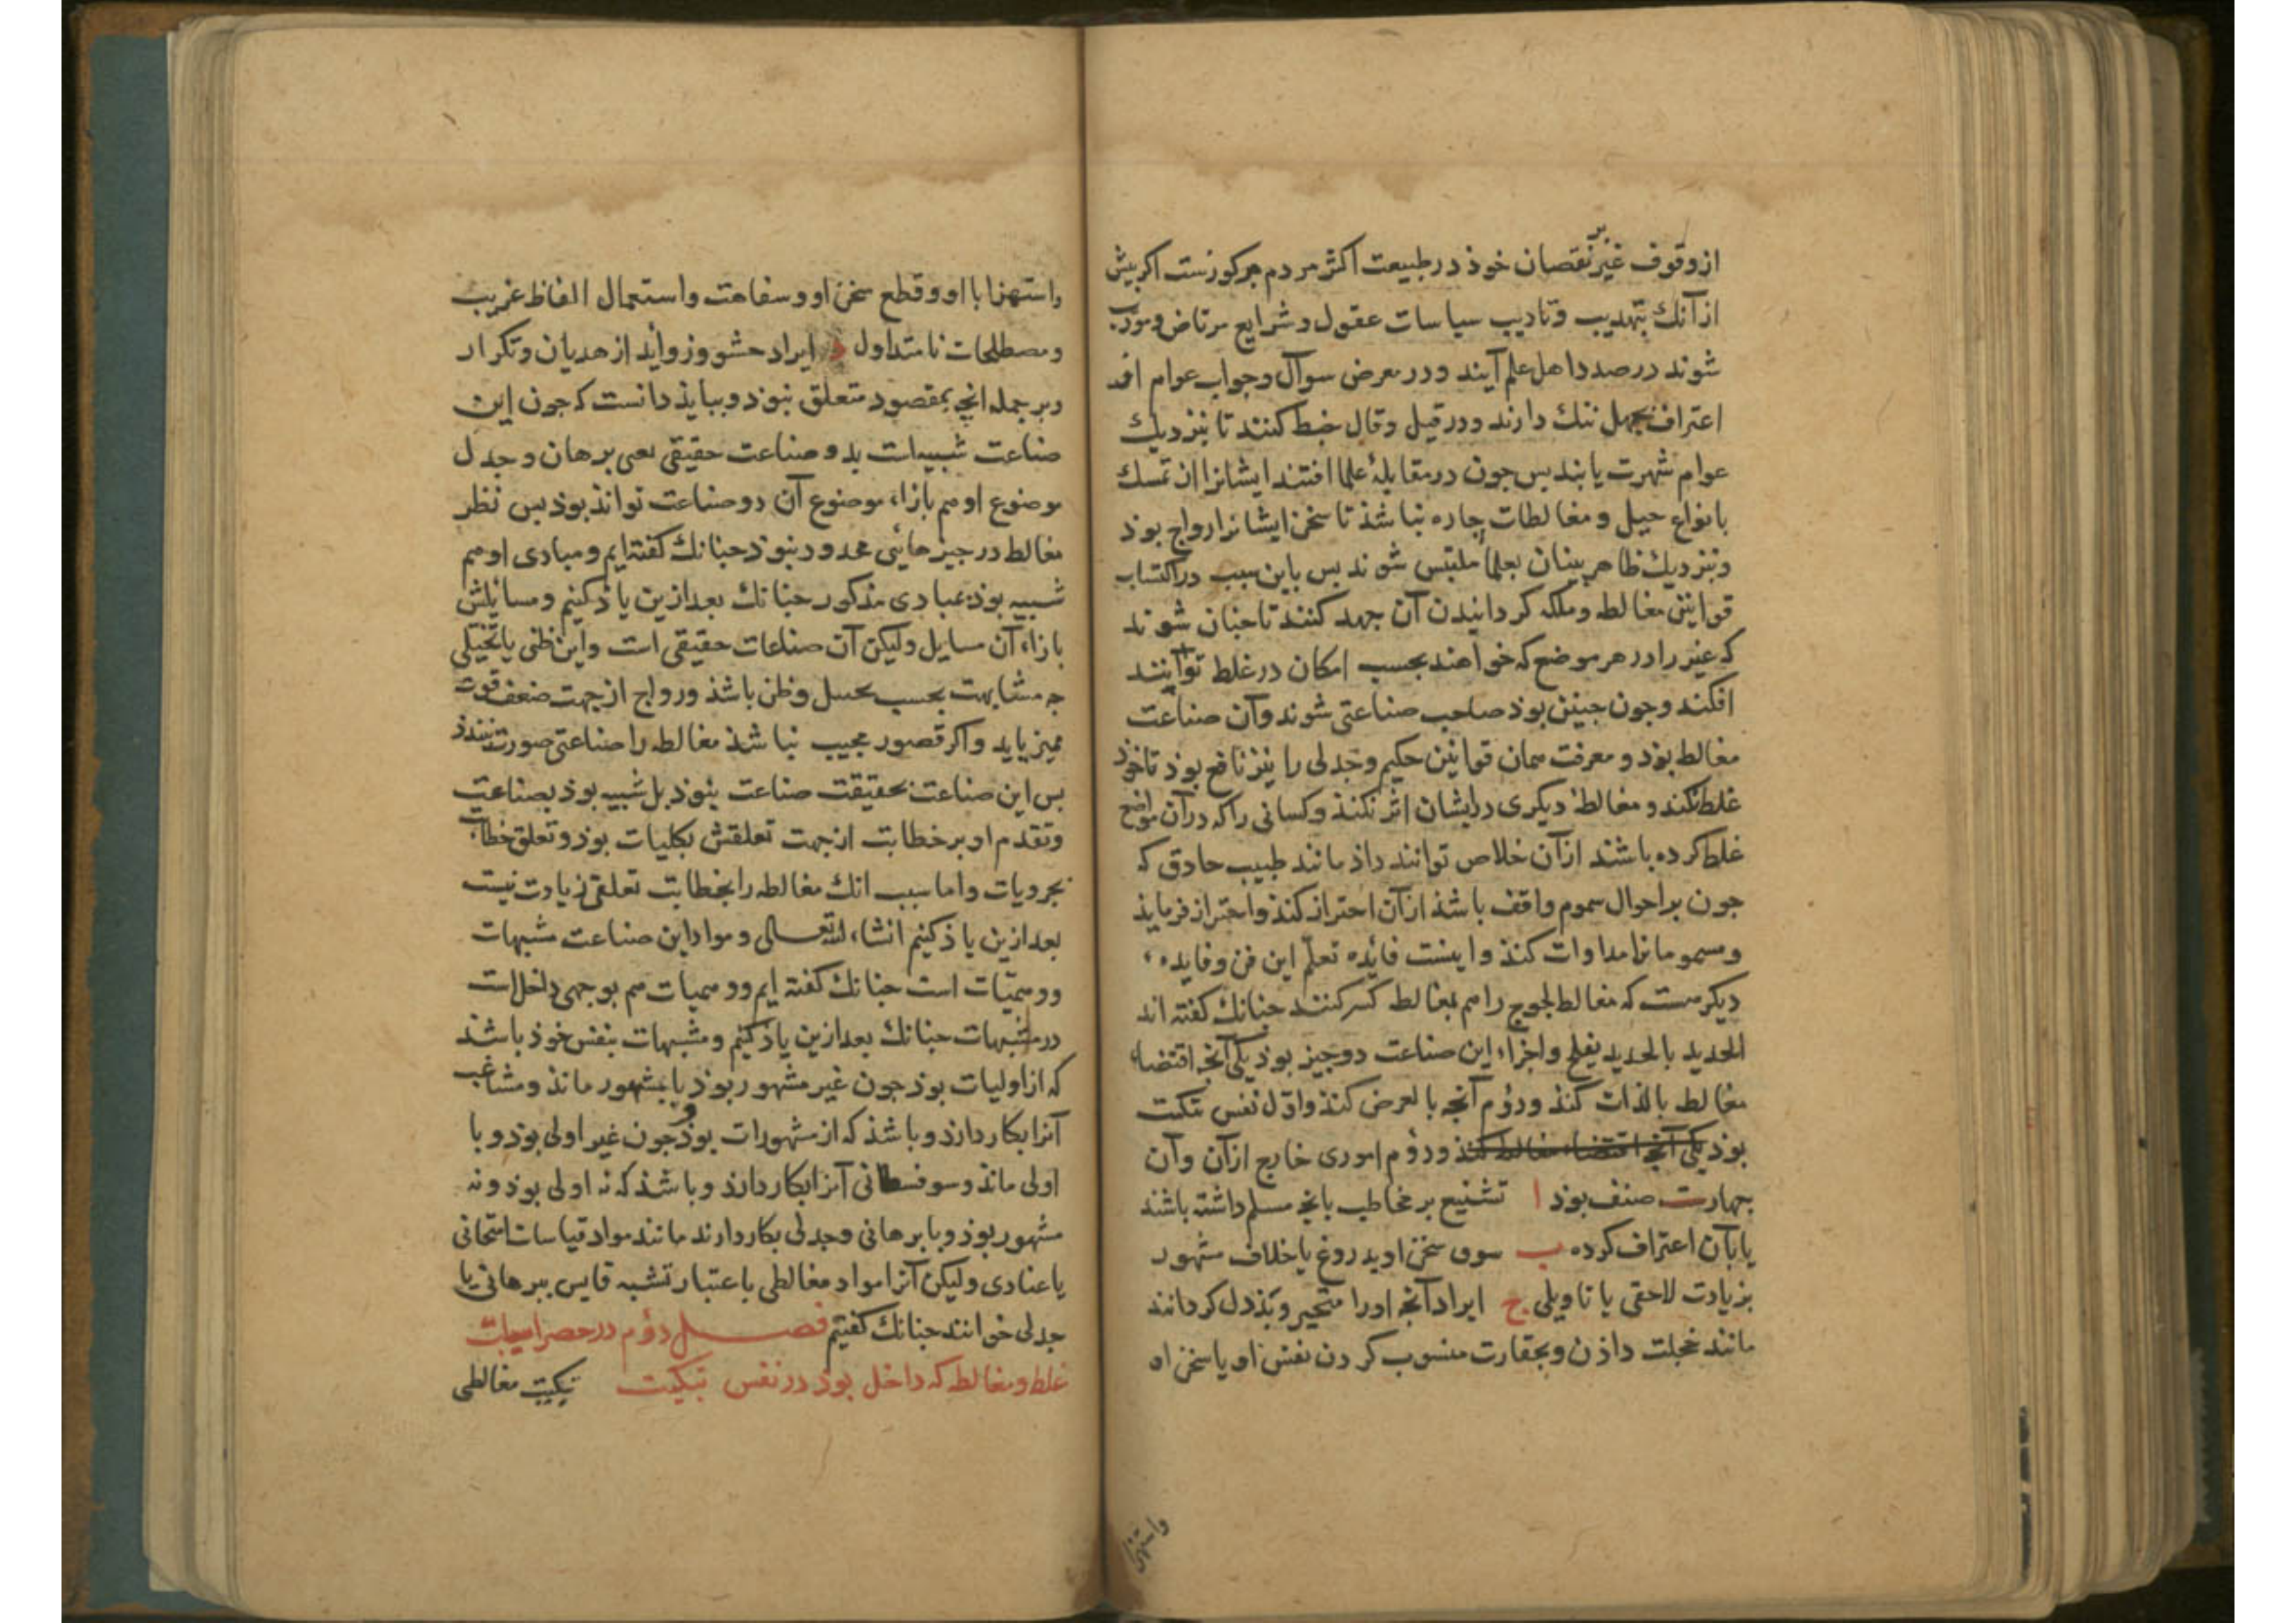 از وقوف غیر بر نقصان خوذ در طبیعت اکثر مردم مرکوزست اکر بیش
از آنك بتهدیب و تادیب سیاسات عقول و شرایع مرتاض و مودب
شوند در صدد اهل علم آیند و در معرض سوآل و جواب عوام افتد
اعتراف بجهل ننك دارند و در قیل و قال خبط کنند تا بنزدیك
عوام شهرت یابند بس جون در مقابلهٔ علما افتند ایشانرا از تمسك
بانواع حیل و مغالطات جاره نباشذ تا سخن ایشانرا رواج بوذ
و بنزدیك ظاهر بینان بعلما ملتبس شوند بس باین سبب در اکتساب
قوانین مغالط و ملکه کردانیدن آن جهد کنند تا جنان شوند
که غیر را در هر موضع که خواهند بحسب امکان در غلط توانند
افکند و جون جنین بوذ صاحب صناعتی شوند و آن صناعت
مغالط بوذ و معرفت همان قوانین حکیم و جدلی را نیز نافع بوذ تا خوذ
غلط نکند و مغالطهٔ دیکری در ایشان اثر نکنذ و کسانی را که در آن مواضع
غلط کرده باشند از آن خلاص توانند داذ مانند طبیب حادق که
جون بر احوال سموم واقف باشذ از آن احتراز کنذ و احتراز فرمایذ
و مسمومانرا مداوات کنذ و اینست فائده تعلّم این فن و فایده
دیکر هست که مغالط لجوج را هم بمغالط کسر کنند جنانك کفته اند
الحدید بالحدید یفلح و اجزاء این صناعت دو جیز بوذ یکی آنج اقتضاء
مغالط بالذات کنذ و دؤم آنجه بالعرض کنذ و اوّل نفس تبکیت
بوذ یکی آنج اقتضاء مغالط کند و دؤم اموری خارج از آن و آن
جهارت صنف بوذ ا تشنیع بر مخاطب بانج مسلم داشته باشند
یا بآن اعتراف کرده ب سوق سخن او بدروغ یا خلاف مشهور
بزیادت لاحقی یا تاویلی ج ایراد آنج او را متحیر و بذدل کردانند
مانند خجلت داذن و بحقارت منسوب کردن نفس او یا سخن او
واستهزا
واستهزا با او و قطع سخن او و سفاهت و استعمال الفاظ غریب
و مصطلحات نا متداول د ایراد حشو و زوأید از هدیان و تکرار
و بر جمله انج بمقصود متعلق نبوذ و ببایذ دانست که جون این
صناعت شبیهات بدو صناعت حقیقی یعی برهان و جدل
موضوع او هم بازاء موضوع آن دو صناعت تواند بوذ بس نظر
مغالط در جیزهائی محدود نبوذ جنانك کفته ایم و مبادی او هم
شبیه بوذ بمبادی مذکور جنانك بعد ازین یاذ کنیم و مسائلش
بازاء آن مسایل و لیکن آن صناعات حقیقی است و این ظنی یا تخیلی
جه مشابهت بحسب تخیل و ظن باشذ و رواج از جهت ضعف قوت
ممیز یابد و اکر قصور مجیب نباشذ مغالطه را صناعتی صورت نبندذ
بس این صناعت بحقیقت صناعت نبوذ بل شبیه بوذ بصناعت
و تقدم او بر خطابت از جهت تعلقش بکلیات بوذ و تعلق خطابت
بجرویات و اما سبب انك مغالطه را بخطابت تعلقی زیادت نیست
بعد ازین یاذ کنیم انشاء الله تعالی و مواد این صناعت مشبهات
و وهمیّات است جنانك کفته ایم و وهمیات هم بوجهی داخل است
در مشبهات جنانك بعد ازین یاذ کنیم و مشبهات بنفس خوذ باشذ
که از اولیات بوذ جون غیر مشهور بوذ یا بمشهور مانذ و مشاغب
آنرا بکار دارذ و باشذ که از مشهورات بوذ و جون غیر اولی بوذ و با
اولی مانذ و سوفسطائی آنرا بکار دارذ و باشذ که نه اولی بوذ و نه
مشهور بوذ و با برهانی و جدلی بکار دارند مانند مواد قیاسات امتحانی
یا عنادی و لیکن آنرا مواد مغالطی باعتبار تشبه قایس ببرهانی یا
جدلی خوانند جنانك کفتیم فصل دؤم در حصر اسباب
غلط و مغالطه که داخل بوذ در نفس تبکیت تبکیت مغالطی